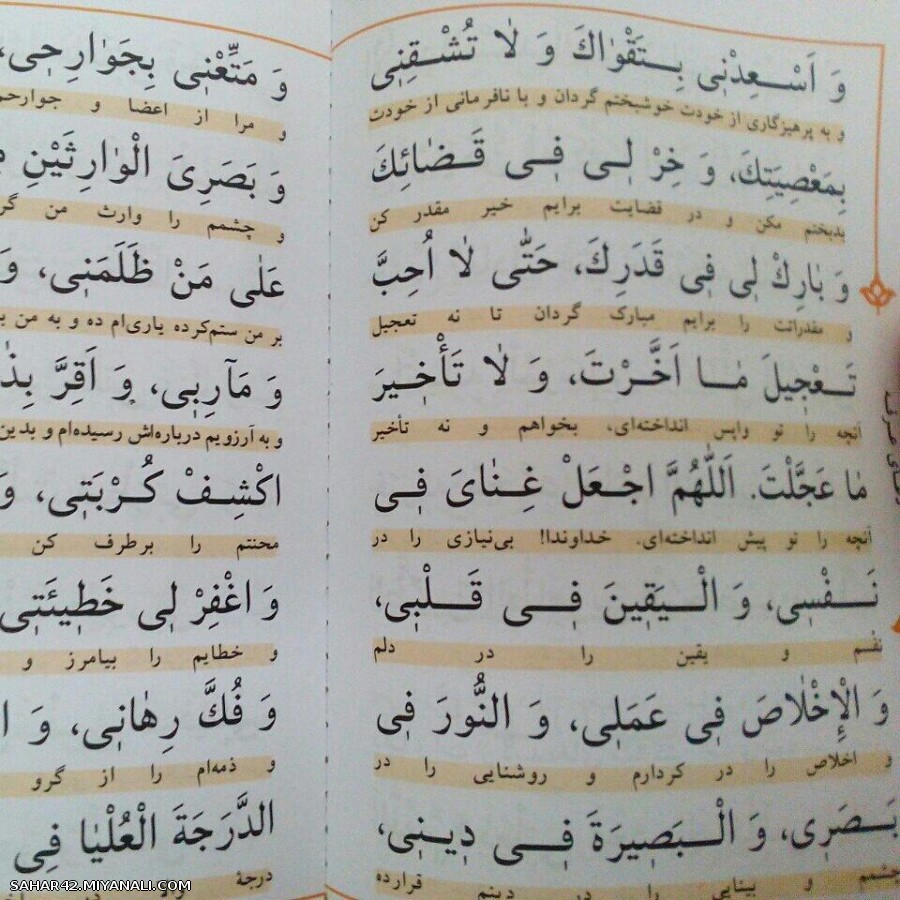 وَ اَسْعِدْنِی بِتَقْوٰاكَ وَ لٰا تُشْقِنِی
و به پرهیزگاری از خودت خوشبختم گردان و با نافرمانی از خودت
بِمَعْصِیَتِكَ، وَ خِرْ لِی فِی قَضٰائِكَ
بدبختم مکن و در قضایت برایم خیر مقدر کن
وَ بٰارِكْ لِی فِی قَدَرِكَ، حَتّٰی لٰا اُحِبَّ
و مقدراتت را برایم مبارک گردان تا نه تعجیل
تَعْجِیلَ مٰا اَخَّرْتَ، وَ لٰا تَأْخِیرَ
آنچه را تو واپس انداخته‌ای، بخواهم و نه تأخیر
مٰا عَجَّلْتَ. اَللّٰهُمَّ اجْعَلْ غِنٰایَ فِی
آنچه را تو پیش انداخته‌ای. خداوندا! بی‌نیازی را در
نَفْسِی، وَ الْیَقِینَ فِی قَلْبِی،
نفسم و یقین را در دلم
وَ الْإِخْلٰاصَ فِی عَمَلِی، وَ النُّورَ فِی
و اخلاص را در کردارم و روشنایی را در
بَصَرِی، وَ الْبَصِیرَةَ فِی دِینِی،
چشمم و بینایی را در دینم قرارده
وَ مَتِّعْنِی بِجَوٰارِحِی،
و مرا از اعضا و
وَ بَصَرِیَ الْوٰارِثَیْنِ
و چشمم را وارث من
عَلٰی مَنْ ظَلَمَنِی، وَ
بر من ستم‌کرده یاری‌ام ده و به من
وَ مَآرِبِی، وَ اَقِرَّ
و به آرزویم درباره‌اش رسیده‌ام و بدین
اكْشِفْ كُرْبَتِی، وَ
محنتم را برطرف کن
وَ اغْفِرْ لِی خَطِیئَتِی
و خطایم را بیامرز و
وَ فُكَّ رِهٰانِی، وَ
و ذمه‌ام را از گرو
الدَّرَجَةَ الْعُلْیٰا فِی
درجهٔ
SAHAR42.MIYANALI.COM